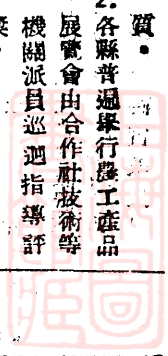 質。
2.各縣普遍舉行農工產品
展覽會由合作社技術等
機關派員巡迴指導評